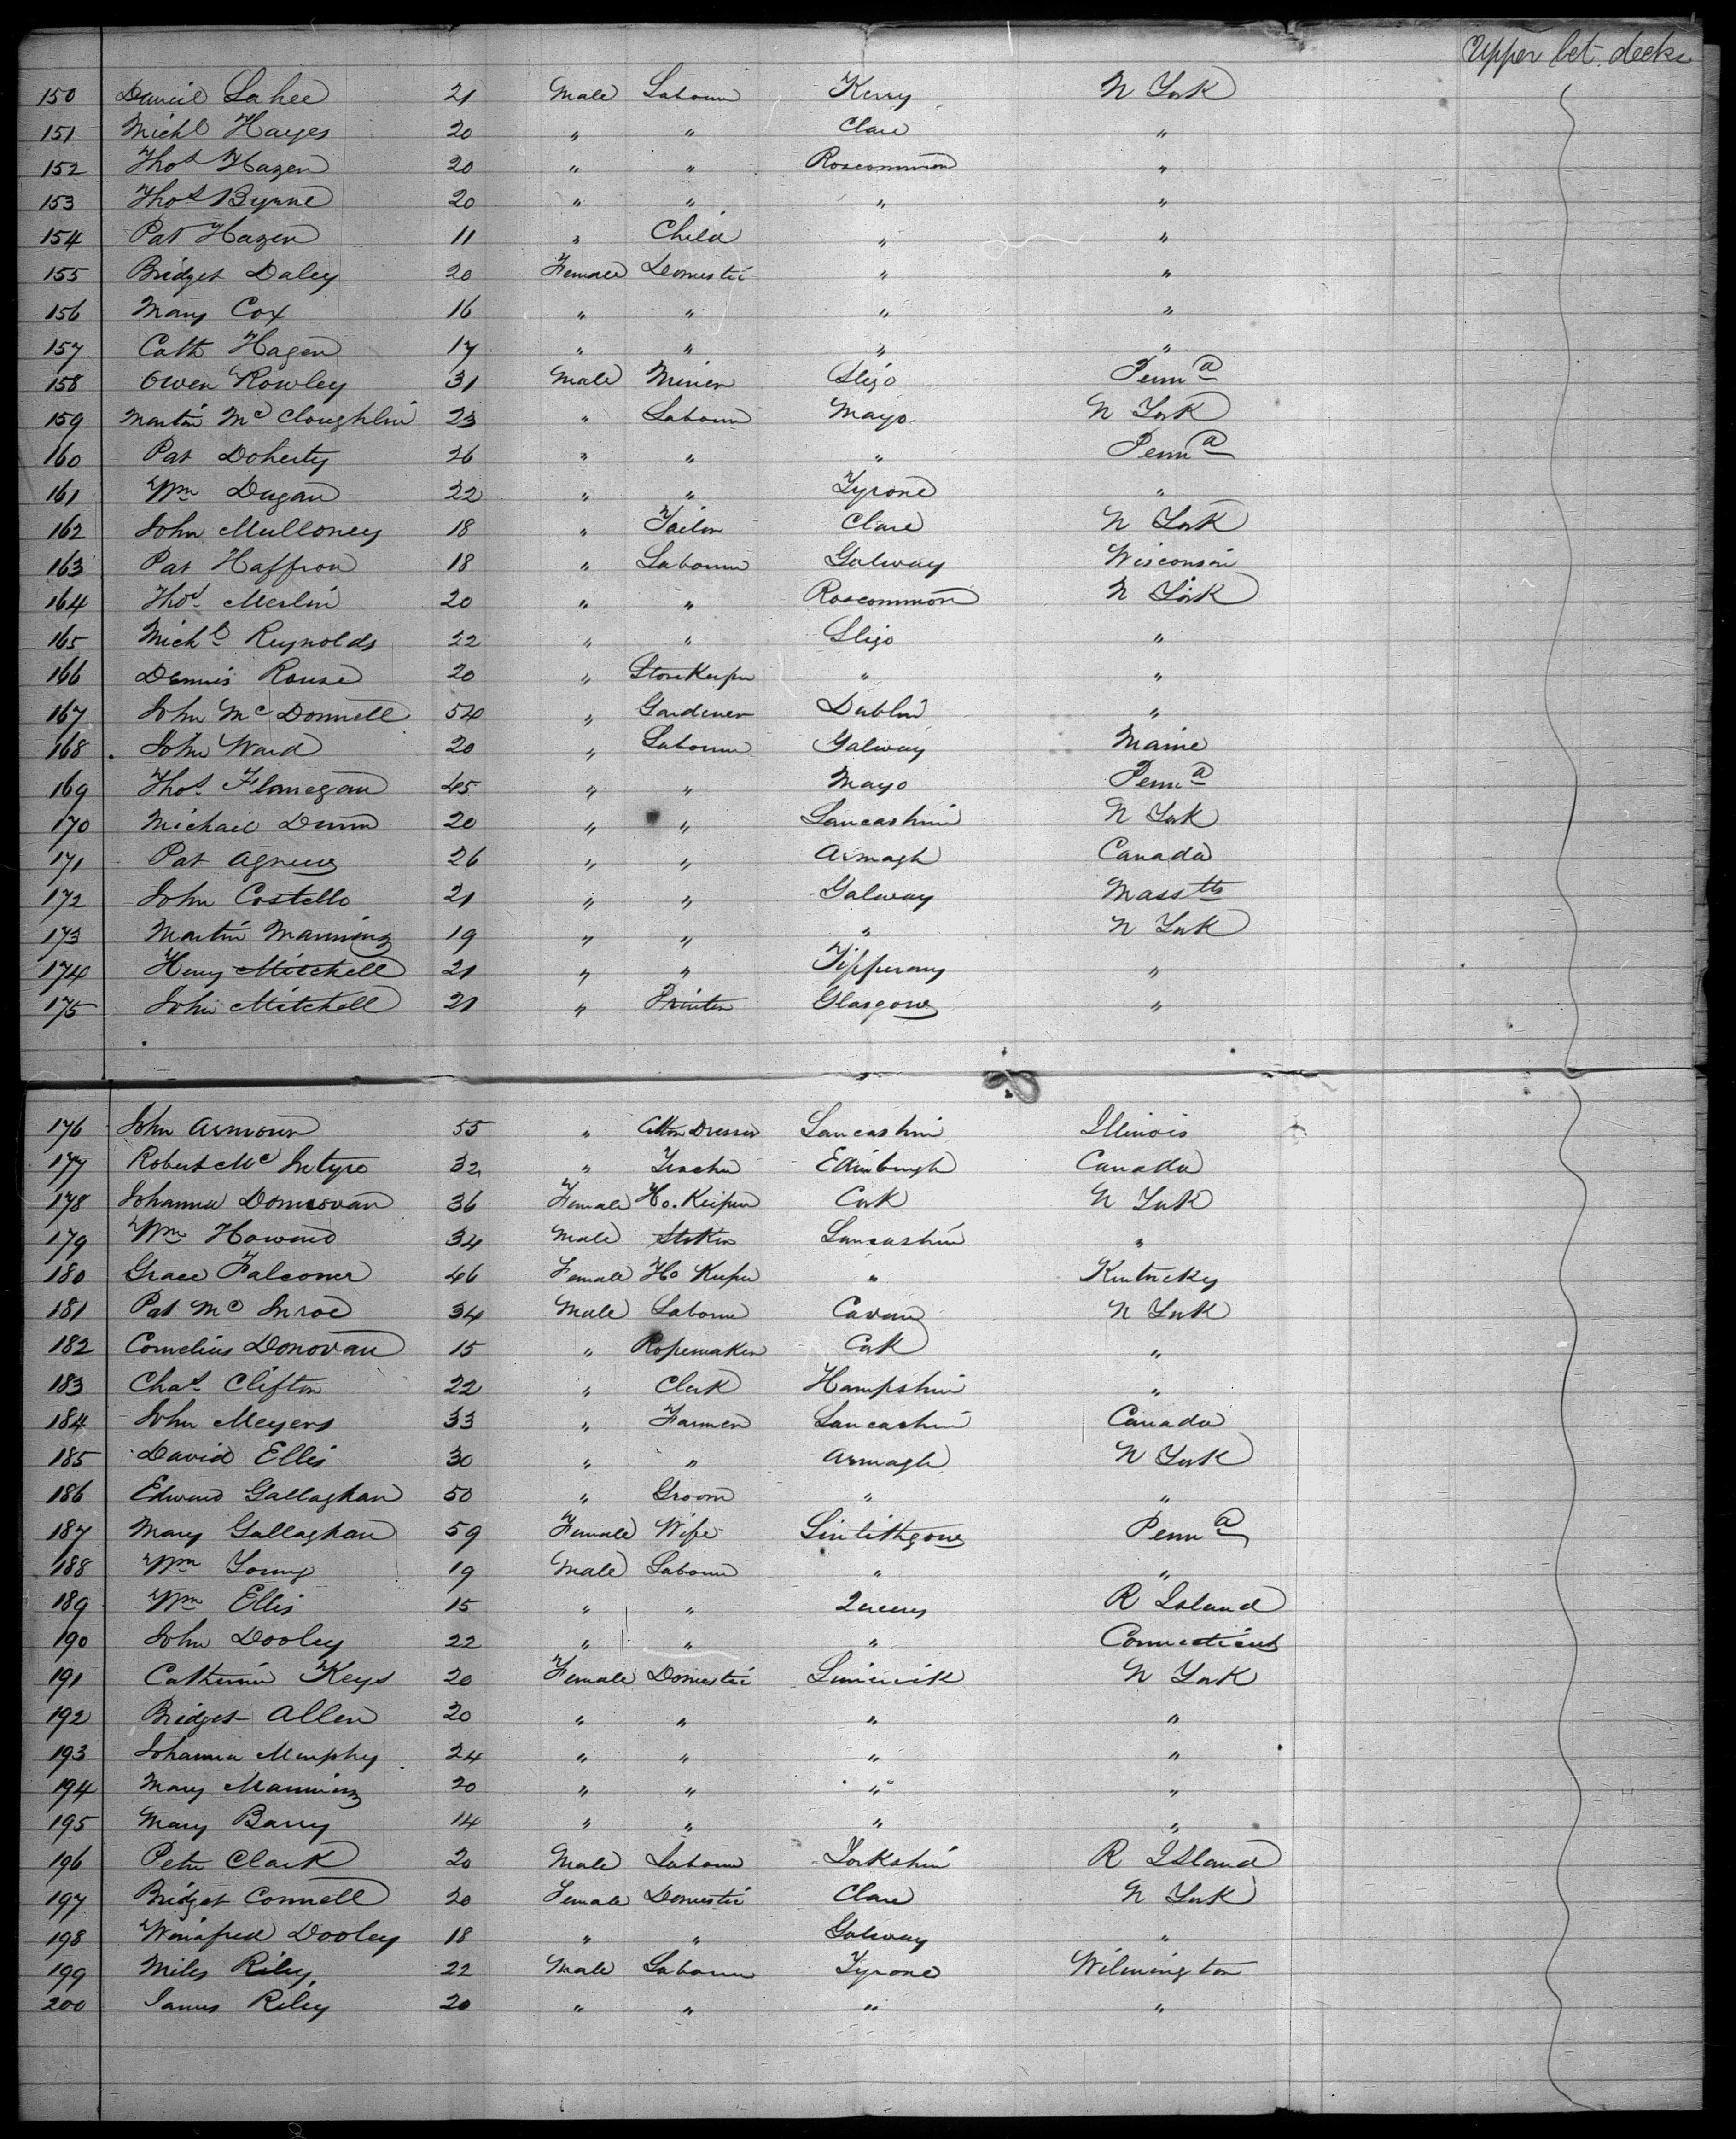 Upper bet. decks
150 Daniel Lahee 21 Male Labourer Kerry N York
151 Michl Hayes 20 " " Clare "
152 Thos Hazen 20 " " Roscommon "
153 Thos Byrne 20 " " " "
154 Pat Hazen 11 " Child " "
155 Bridget Daley 20 Female Domestic " "
156 Mary Cox 16 " " " "
157 Cath Hagen 17 " " " "
158 Owen Rowley 31 Male Miner Sligo Penna
159 Martin McCloughlin 23 " Labourer Mayo N York
160 Pat Doherty 26 " " " Penna
161 Wm Dugan 22 " " Tyrone "
162 John Mulloney 18 " Tailor Clare N York
163 Pat Haffron 18 " Labourer Galway Wisconsin
164 Thos Merlin 20 " " Roscommon N York
165 Michl Reynolds 22 " " Sligo "
166 Dennis Rouse 20 " StoreKeeper " "
167 John McDonnell 54 " Gardener Dublin "
168 John Ward 20 " Labourer Galway Maine
169 Thos Flanegan 45 " " Mayo Penna
170 Michael Dunn 20 " " Lancashire N York
171 Pat Agnew 26 " " Armagh Canada
172 John Costello 21 " " Galway Masstts
173 Martin Manning 19 " " " N York
174 Henry Mitchell 21 " " Tipperary "
175 John Mitchell 21 " Printer Glasgow "
176 John Armour 55 " Cotton Dresser Lancashire Illinois
177 Robert McIntyre 32 " Teacher Edinburgh Canada
178 Johanna Donnovan 36 Female Ho. Keeper Cork N York
179 Wm Howard 34 Male Stoker Lancashire "
180 Grace Falconer 46 Female Ho Keeper " Kentucky
181 Pat McInroe 34 Male Labourer Cavan N York
182 Cornelius Donovan 15 " Ropemaker Cork "
183 Chas Clifton 22 " Clerk Hampshire "
184 John Meyers 33 " Farmer Lancashire Canada
185 David Ellis 30 " " Armagh N York
186 Edward Gallaghan 50 " Groom " "
187 Mary Gallaghan 59 Female Wife Linlithgow Penna
188 Wm Young 19 Male Labourer " "
189 Wm Ellis 15 " " Queens R Island
190 John Dooley 22 " " " Connecticut
191 Catherine Keys 20 Female Domestic Limerick N York
192 Bridget Allen 20 " " " "
193 Johanna Murphy 24 " " " "
194 Mary Manning 20 " " " "
195 Mary Barry 14 " " " "
196 Peter Clark 20 Male Labourer Yorkshire R Island
197 Bridget Connell 20 Female Domestic Clare N York
198 Winifred Dooley 18 " " Galway "
199 Miles Riley 22 Male Labourer Tyrone Wilmington
200 James Riley 20 " " " "